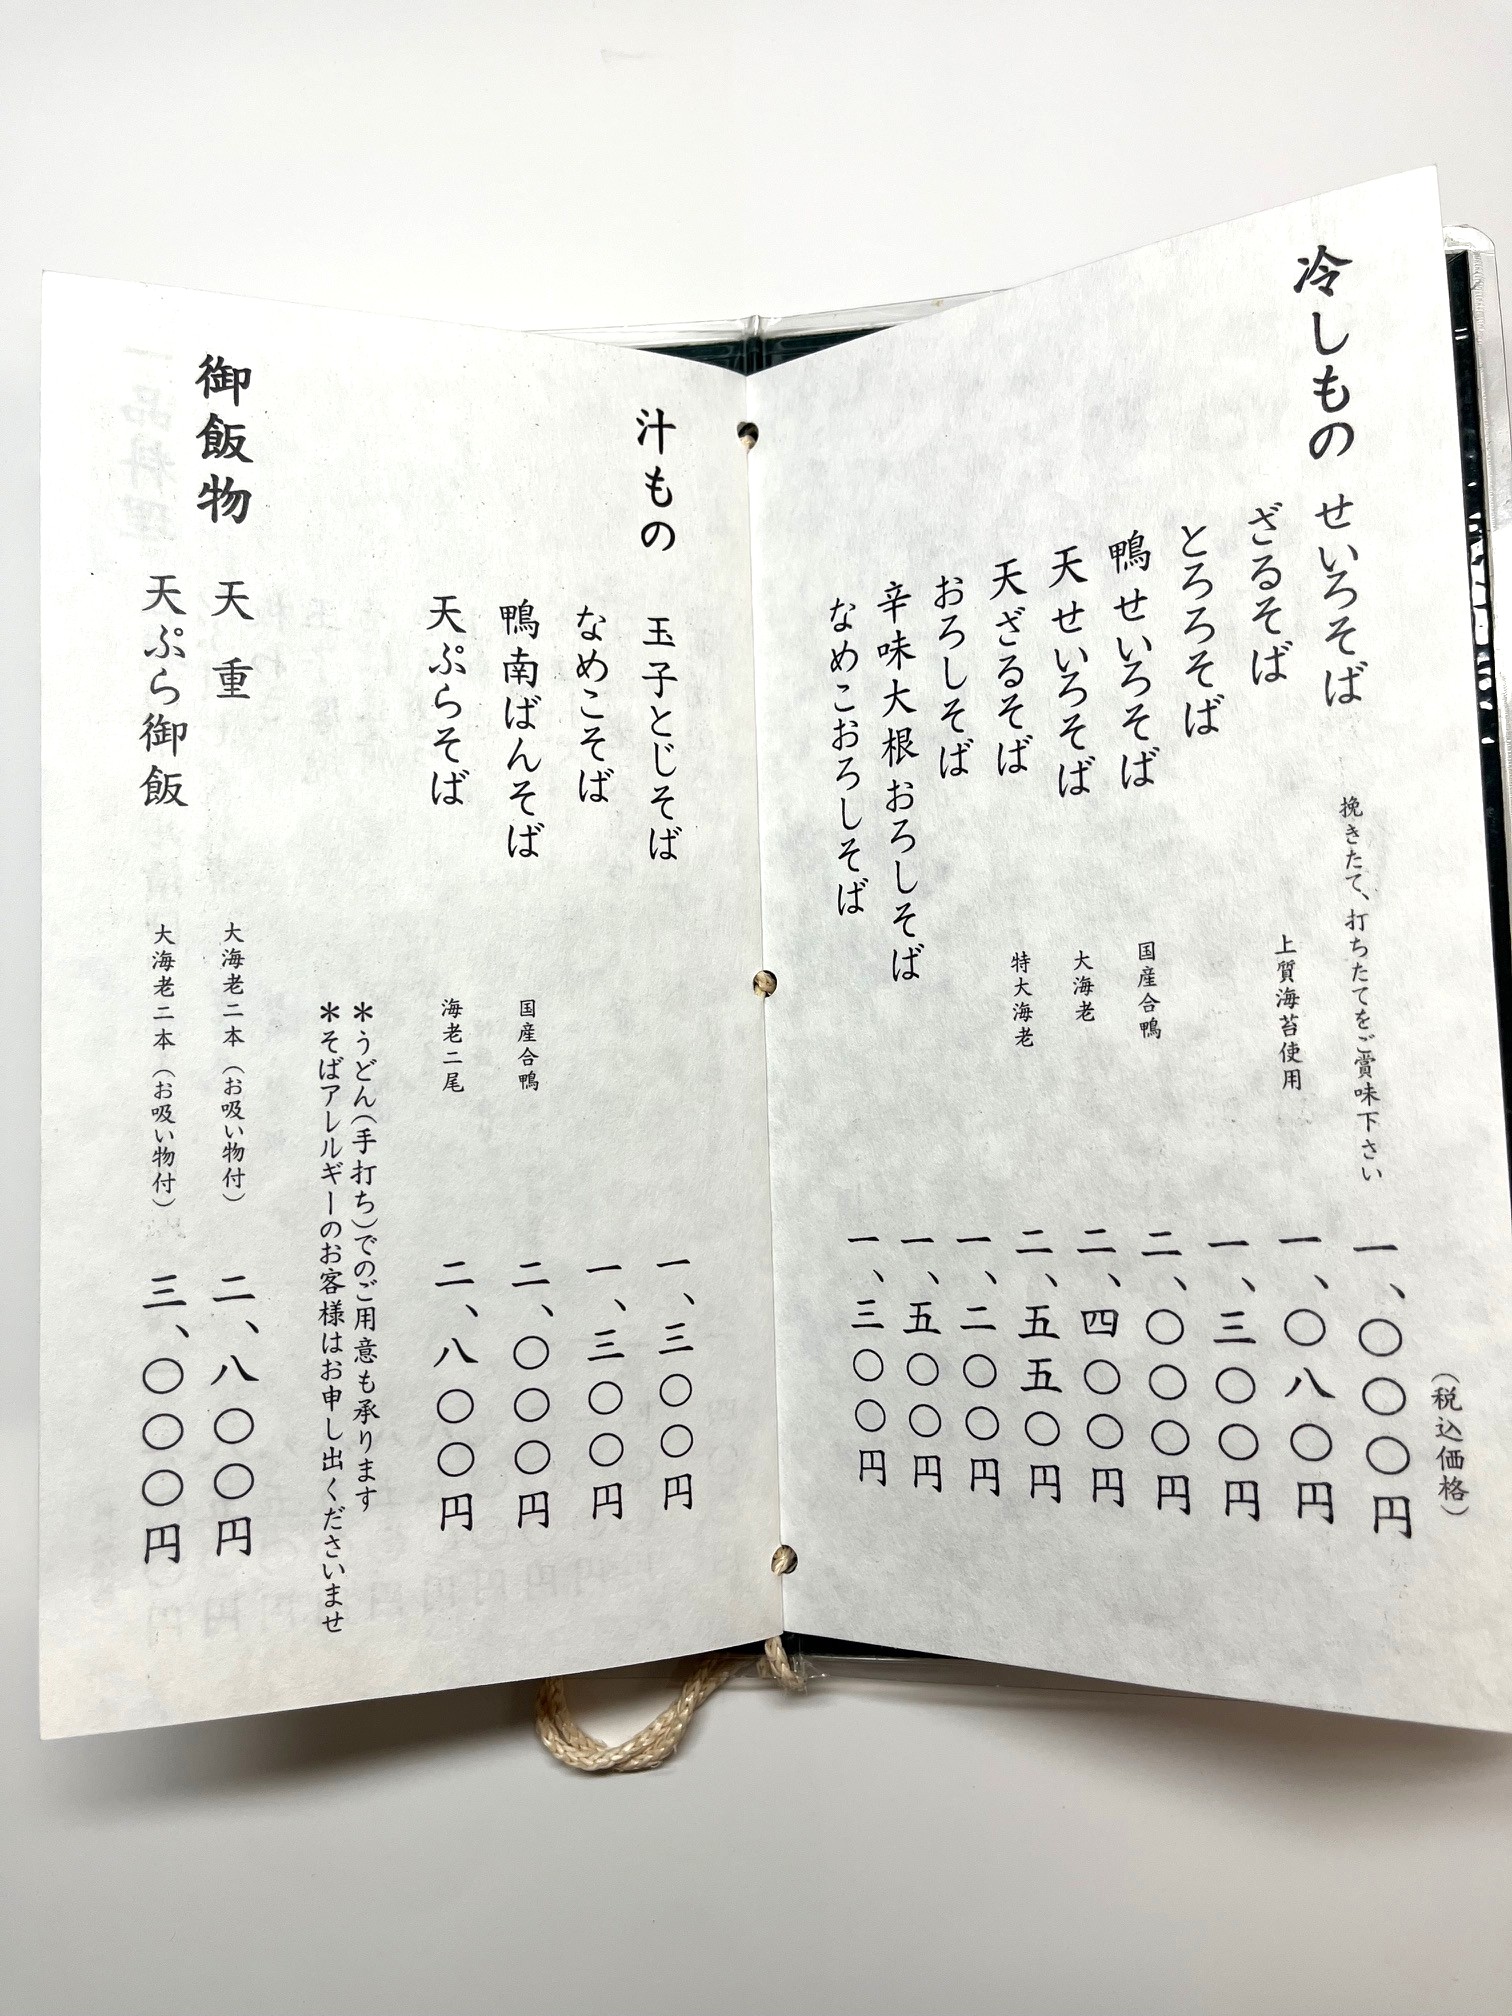 (税込価格)
冷しもの
せいろそば 挽きたて、打ちたてをご賞味下さい 一、〇〇〇円
ざるそば 上質海苔使用 一、〇八〇円
とろろそば 一、三〇〇円
鴨せいろそば 国産合鴨 二、〇〇〇円
天せいろそば 大海老 二、四〇〇円
天ざるそば 特大海老 二、五五〇円
おろしそば 一、二〇〇円
辛味大根おろしそば 一、五〇〇円
なめこおろしそば 一、三〇〇円
汁もの
玉子とじそば 一、三〇〇円
なめこそば 一、三〇〇円
鴨南ばんそば 国産合鴨 二、〇〇〇円
天ぷらそば 海老二尾 二、八〇〇円
＊うどん(手打ち)でのご用意も承ります
＊そばアレルギーのお客様はお申し出くださいませ
御飯物
天重 大海老二本(お吸い物付) 二、八〇〇円
天ぷら御飯 大海老二本(お吸い物付) 三、〇〇〇円